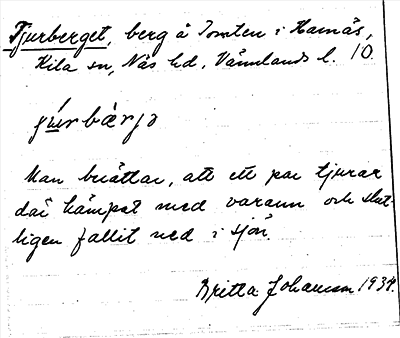 Tjurberget, berg å Tomten i Harnäs,
Kila sn, Näs hd, Värmlands l. 10.
çúrbærjə
Man berättar, att ett par tjurar
där kämpat med varann och slut-
ligen fallit ned i sjön.
Britta Johansson 1934.